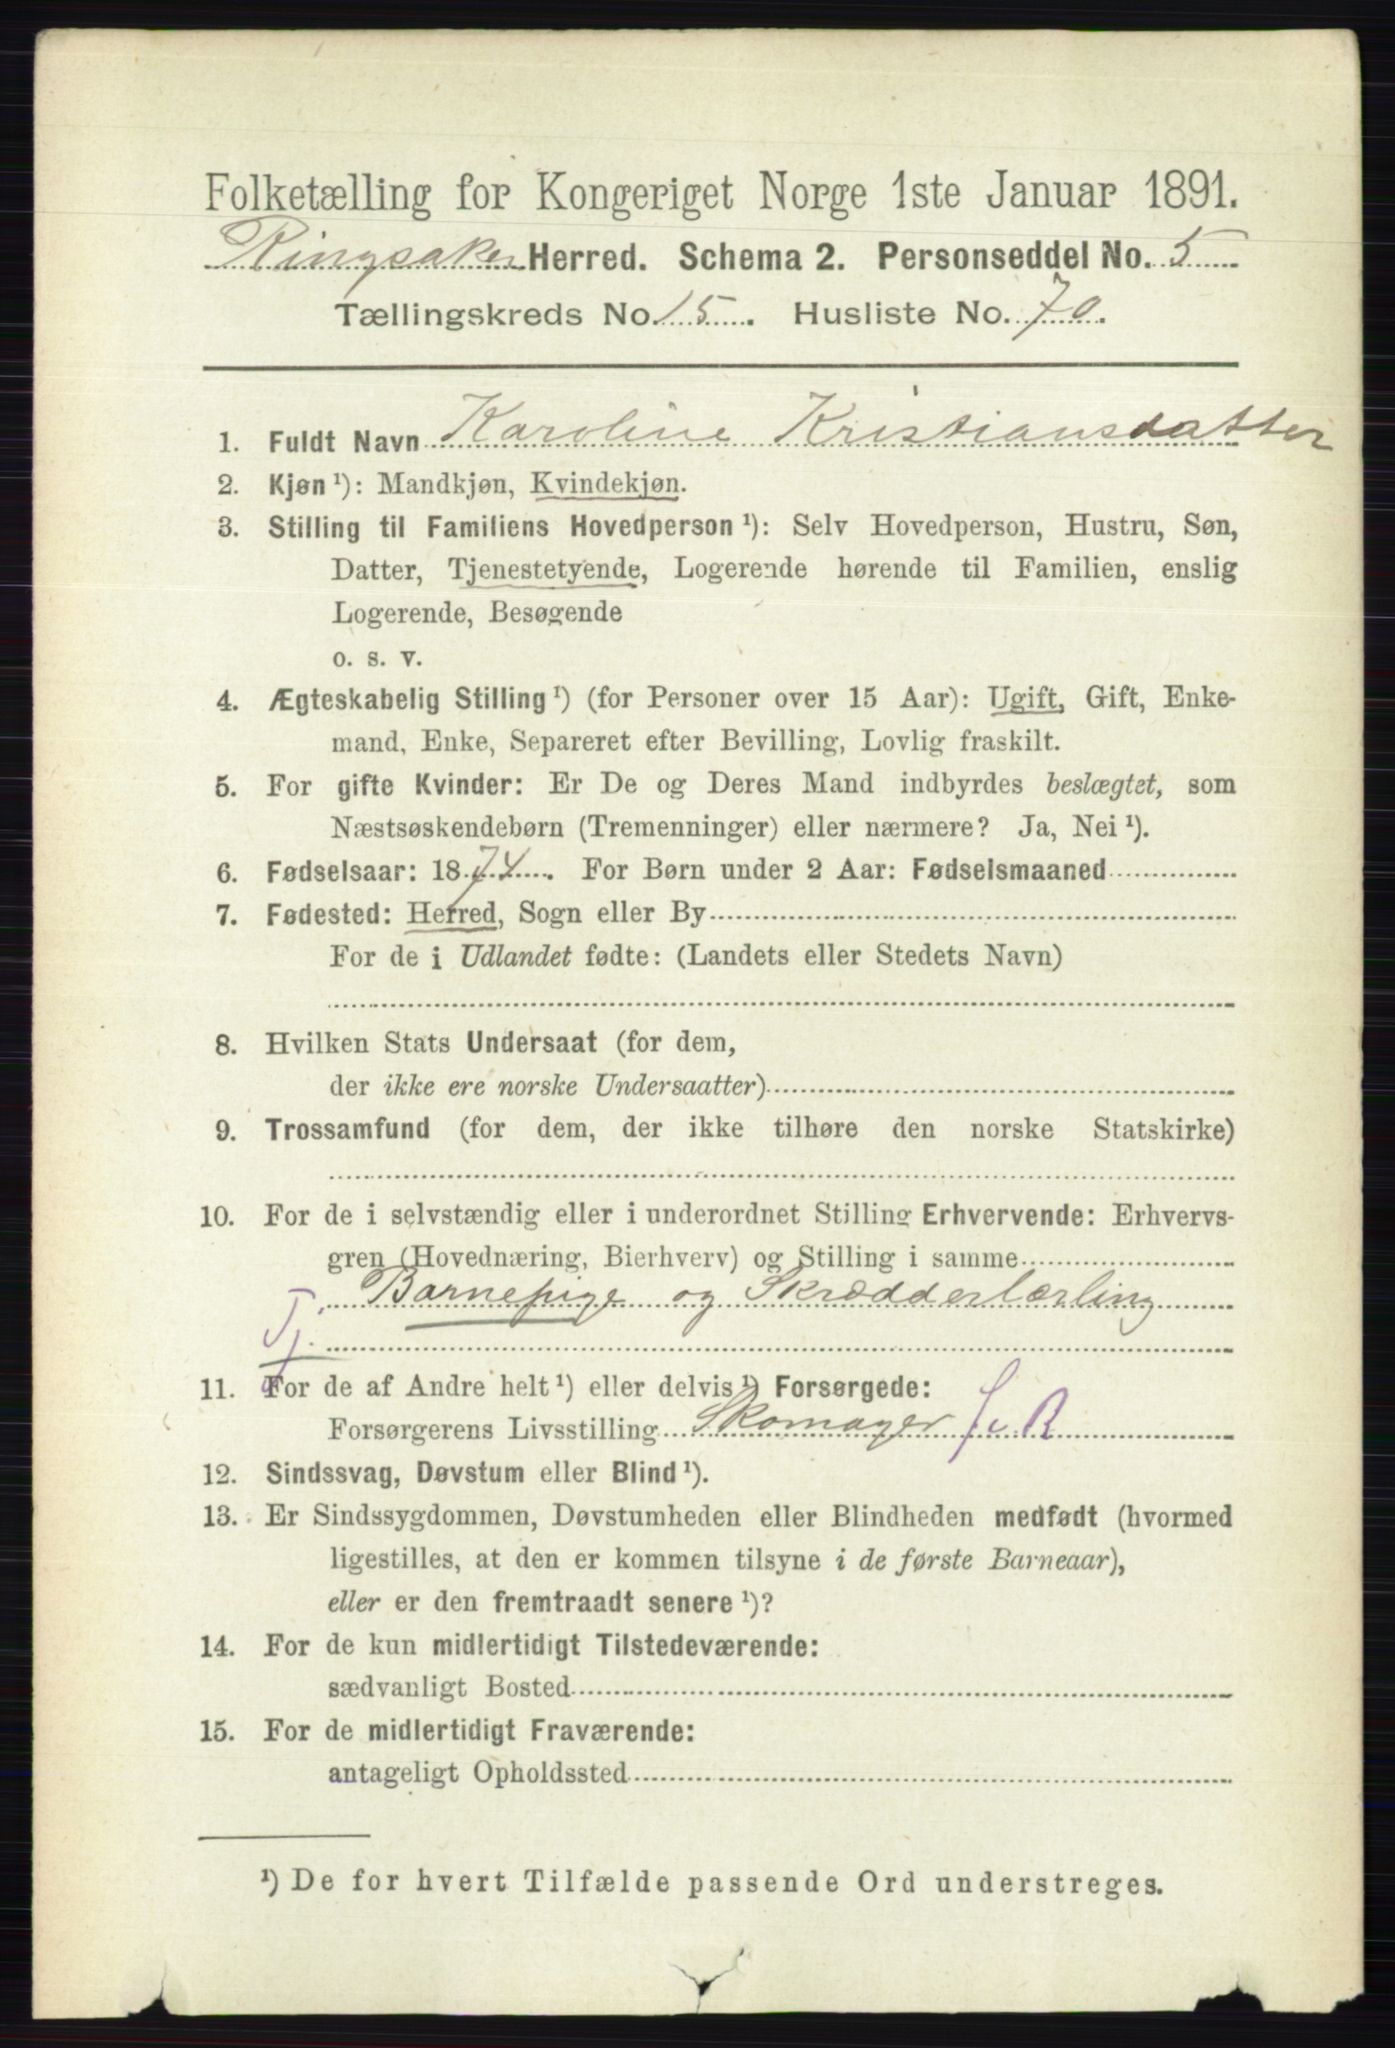 Folketælling for Kongeriget Norge 1ste Januar 1891.
Ringsaker Herred. Schema 2. Personseddel No. 5
Tællingskreds No. 15. Husliste No. 70.
1. Fuldt Navn Karoline Kristiansdatter
2. Kjøn ¹): Mandkjøn, Kvindekjøn.
3. Stilling til Familiens Hovedperson ¹): Selv Hovedperson, Hustru, Søn,
Datter, Tjenestetyende, Logerende hørende til Familien, enslig
Logerende, Besøgende
o. s. v.
4. Ægteskabelig Stilling ¹) (for Personer over 15 Aar): Ugift, Gift, Enke-
mand, Enke, Separeret efter Bevilling, Lovlig fraskilt.
5. For gifte Kvinder: Er De og Deres Mand indbyrdes beslægtet, som
Næstsøskendebørn (Tremenninger) eller nærmere? Ja, Nei ¹).
6. Fødselsaar: 1874. For Børn under 2 Aar: Fødselsmaaned
7. Fødested: Herred, Sogn eller By
For de i Udlandet fødte: (Landets eller Stedets Navn)
8. Hvilken Stats Undersaat (for dem,
der ikke ere norske Undersaatter)
9. Trossamfund (for dem, der ikke tilhøre den norske Statskirke)
10. For de i selvstændig eller i underordnet Stilling Erhvervende: Erhvervs-
gren (Hovednæring, Bierhverv) og Stilling i samme
Barnepige og Skrædderlærling
Tj.
11. For de af Andre helt ¹) eller delvis ¹) Forsørgede:
Forsørgerens Livsstilling Skomager
12. Sindssvag, Døvstum eller Blind ¹).
13. Er Sindssygdommen, Døvstumheden eller Blindheden medfødt (hvormed
ligestilles, at den er kommen tilsyne i de første Barneaar),
eller er den fremtraadt senere ¹)?
14. For de kun midlertidigt Tilstedeværende:
sædvanligt Bosted
15. For de midlertidigt Fraværende:
antageligt Opholdssted
¹) De for hvert Tilfælde passende Ord understreges.